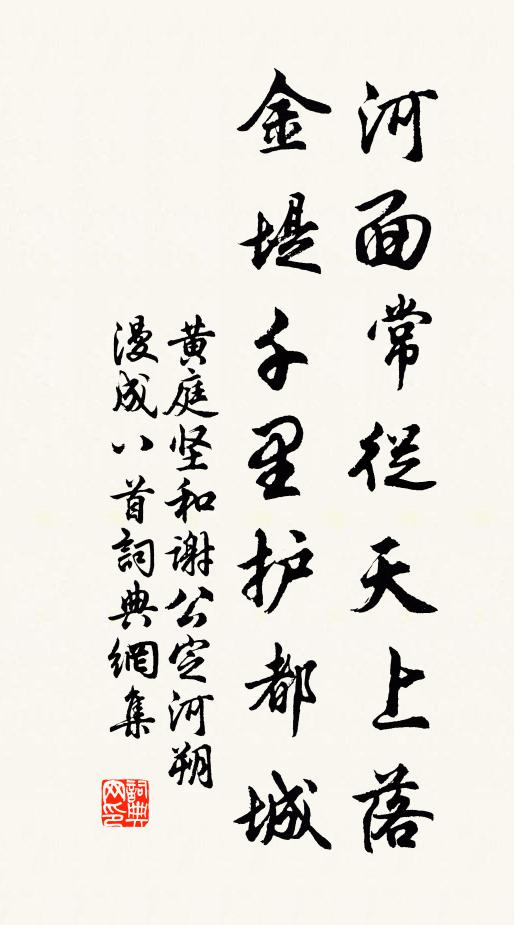 河面常從天上落
金堤千里护都城
黄庭坚和谢公定河朔
漫成八首詞典網集
詞典网印